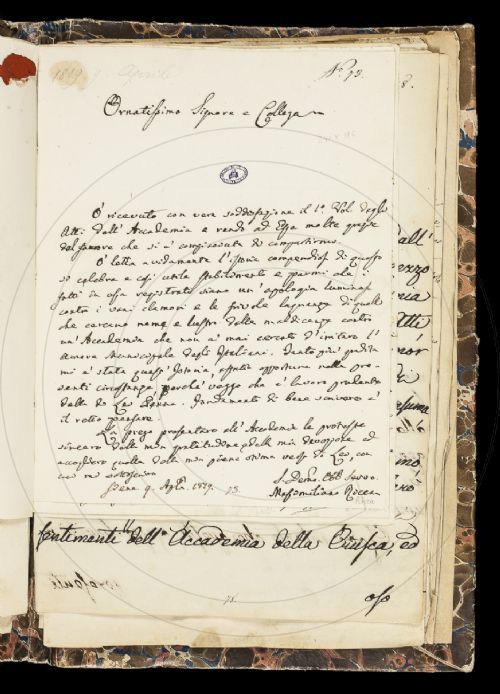 1819 9. Aprile
N.° 93.
Ornatissimo Signore e Collega
Ò ricevuto con vera soddisfazione il 1.° Vol. degli
Atti dell' Accademia e rendo ad Essa molte grazie
del favore che si è compiaciuta di compartirmi.
Ò letta avidamente l'istoria compendiosa di questo
sì celebre e così utile stabilimento e parmi che i
fatti in essa registrati siano un' apologia luminosa
contro i vani clamori e le frivole lagnanze di quelli
che cercano nome e lustro dalla maldicenza contro
un' Accademia che non à mai cercato d'imitare l'
amore Municipale degli Italiani. Tanto più gradita
mi è stata quest' Istoria, opportuna nelle pre-
senti circostanze perchè veggo che è lavoro
da Lei. Fondamento di bene scrivere è
il retto pensare.
La prego presentare all' Accademia le proteste
sincere della mia gratitudine, della mia devozione ed
accogliere quelle della mia piena stima verso di Lei, con
cui mi
Siena 9. Aple. 1819.
93.
S. Devmo. Obb. Servo.
Massimiliano Ricca
8.
dall'
ezzo
Atti
di
sentimenti dell' Accademia della Crusca, ed
oso